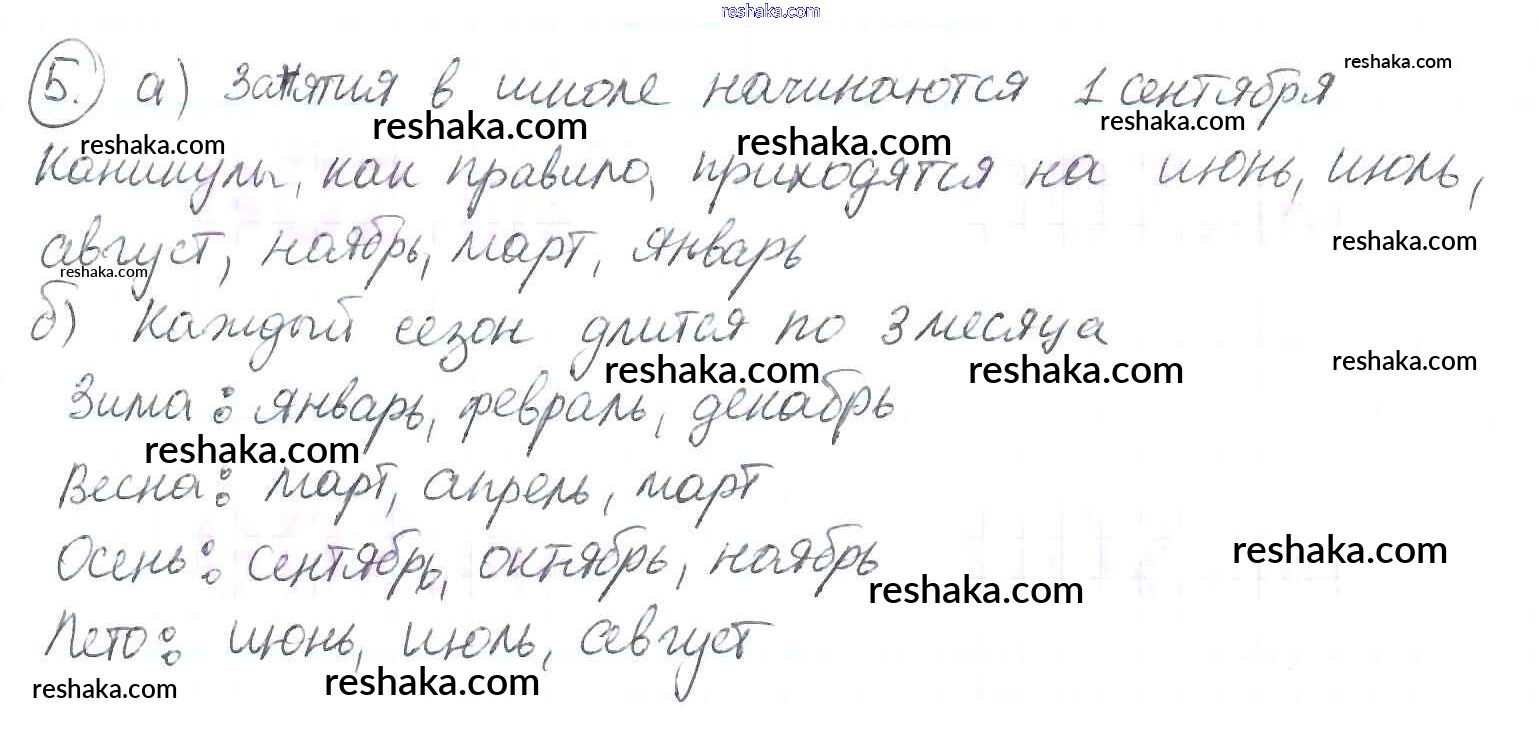 reshaka.com
5. а) Занятия в школе начинаются 1 сентября
reshaka.com
reshaka.com
reshaka.com
reshaka.com
reshaka.com
Каникулы, как правило, приходятся на июнь, июль,
август, ноябрь, март, январь
reshaka.com
reshaka.com
б) Каждый сезон длится по 3 месяца
reshaka.com
reshaka.com
reshaka.com
Зима: январь, февраль, декабрь
reshaka.com
Весна: март, апрель, март
Осень: сентябрь, октябрь, ноябрь
reshaka.com
reshaka.com
Лето: июнь, июль, август
reshaka.com
reshaka.com